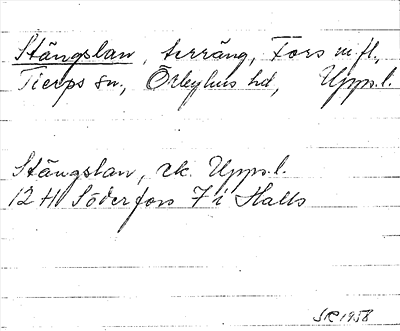 Stängslan, terräng, Fors m.fl.,
Tierps sn, Örbyhus hd, Upps.l.
Stängslan, rk. Upps.l.
12 H Söderfors 7 i Halls
SR 1958